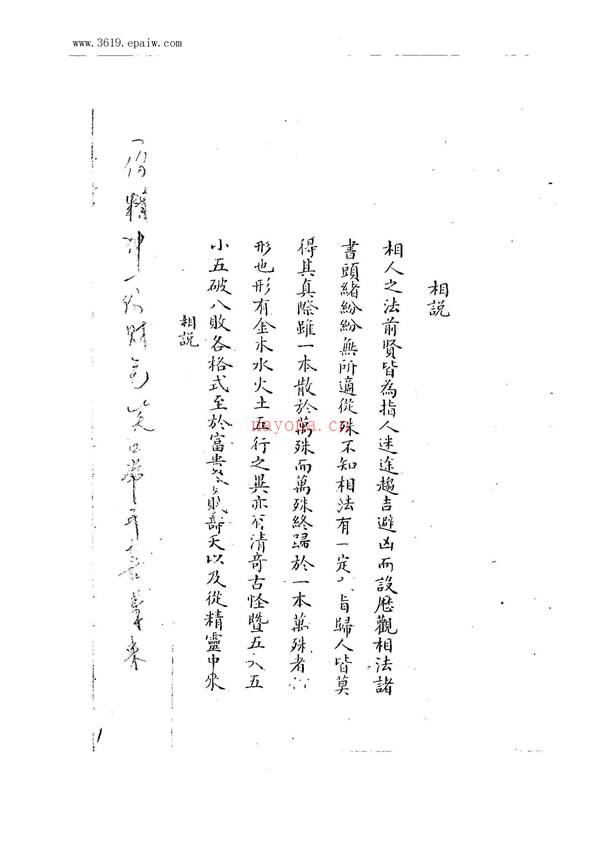 www.3619.epaiw.com
相説
相人之法前賢皆為指人迷途趨吉避凶而設歷觀相法諸
書頭緒紛紛無所適從殊不知相法有一定旨歸人皆莫
得其真際雖一本散於萬殊而萬殊終歸於一本萬殊者
形也形有金木水火土五行之異亦有清奇古怪暨五大五
小五破八敗各格式至於富貴貧賤壽夭以及從精靈中來
相説
nayona.cn
1